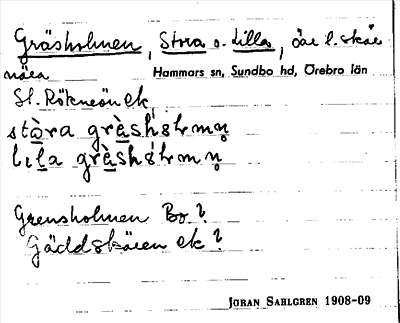 Gräsholmen, Stora o. Lilla, öar l. skär
nära Hammars sn, Sundbo hd, Örebro län
St. Rökneön ek.
stȯra grȧsholmn̥
lıla grȧsholmn̥
Grensholmen Bo?
Gäddskären ek?
JÖRAN SAHLGREN 1908-09